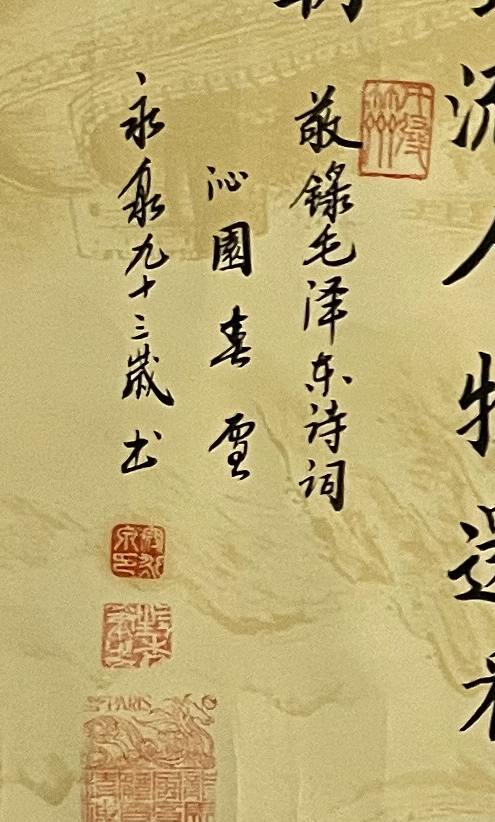 流人物還看
朝
敬錄毛泽东诗词
沁園春雪
永泉九十三歲书
PARIS